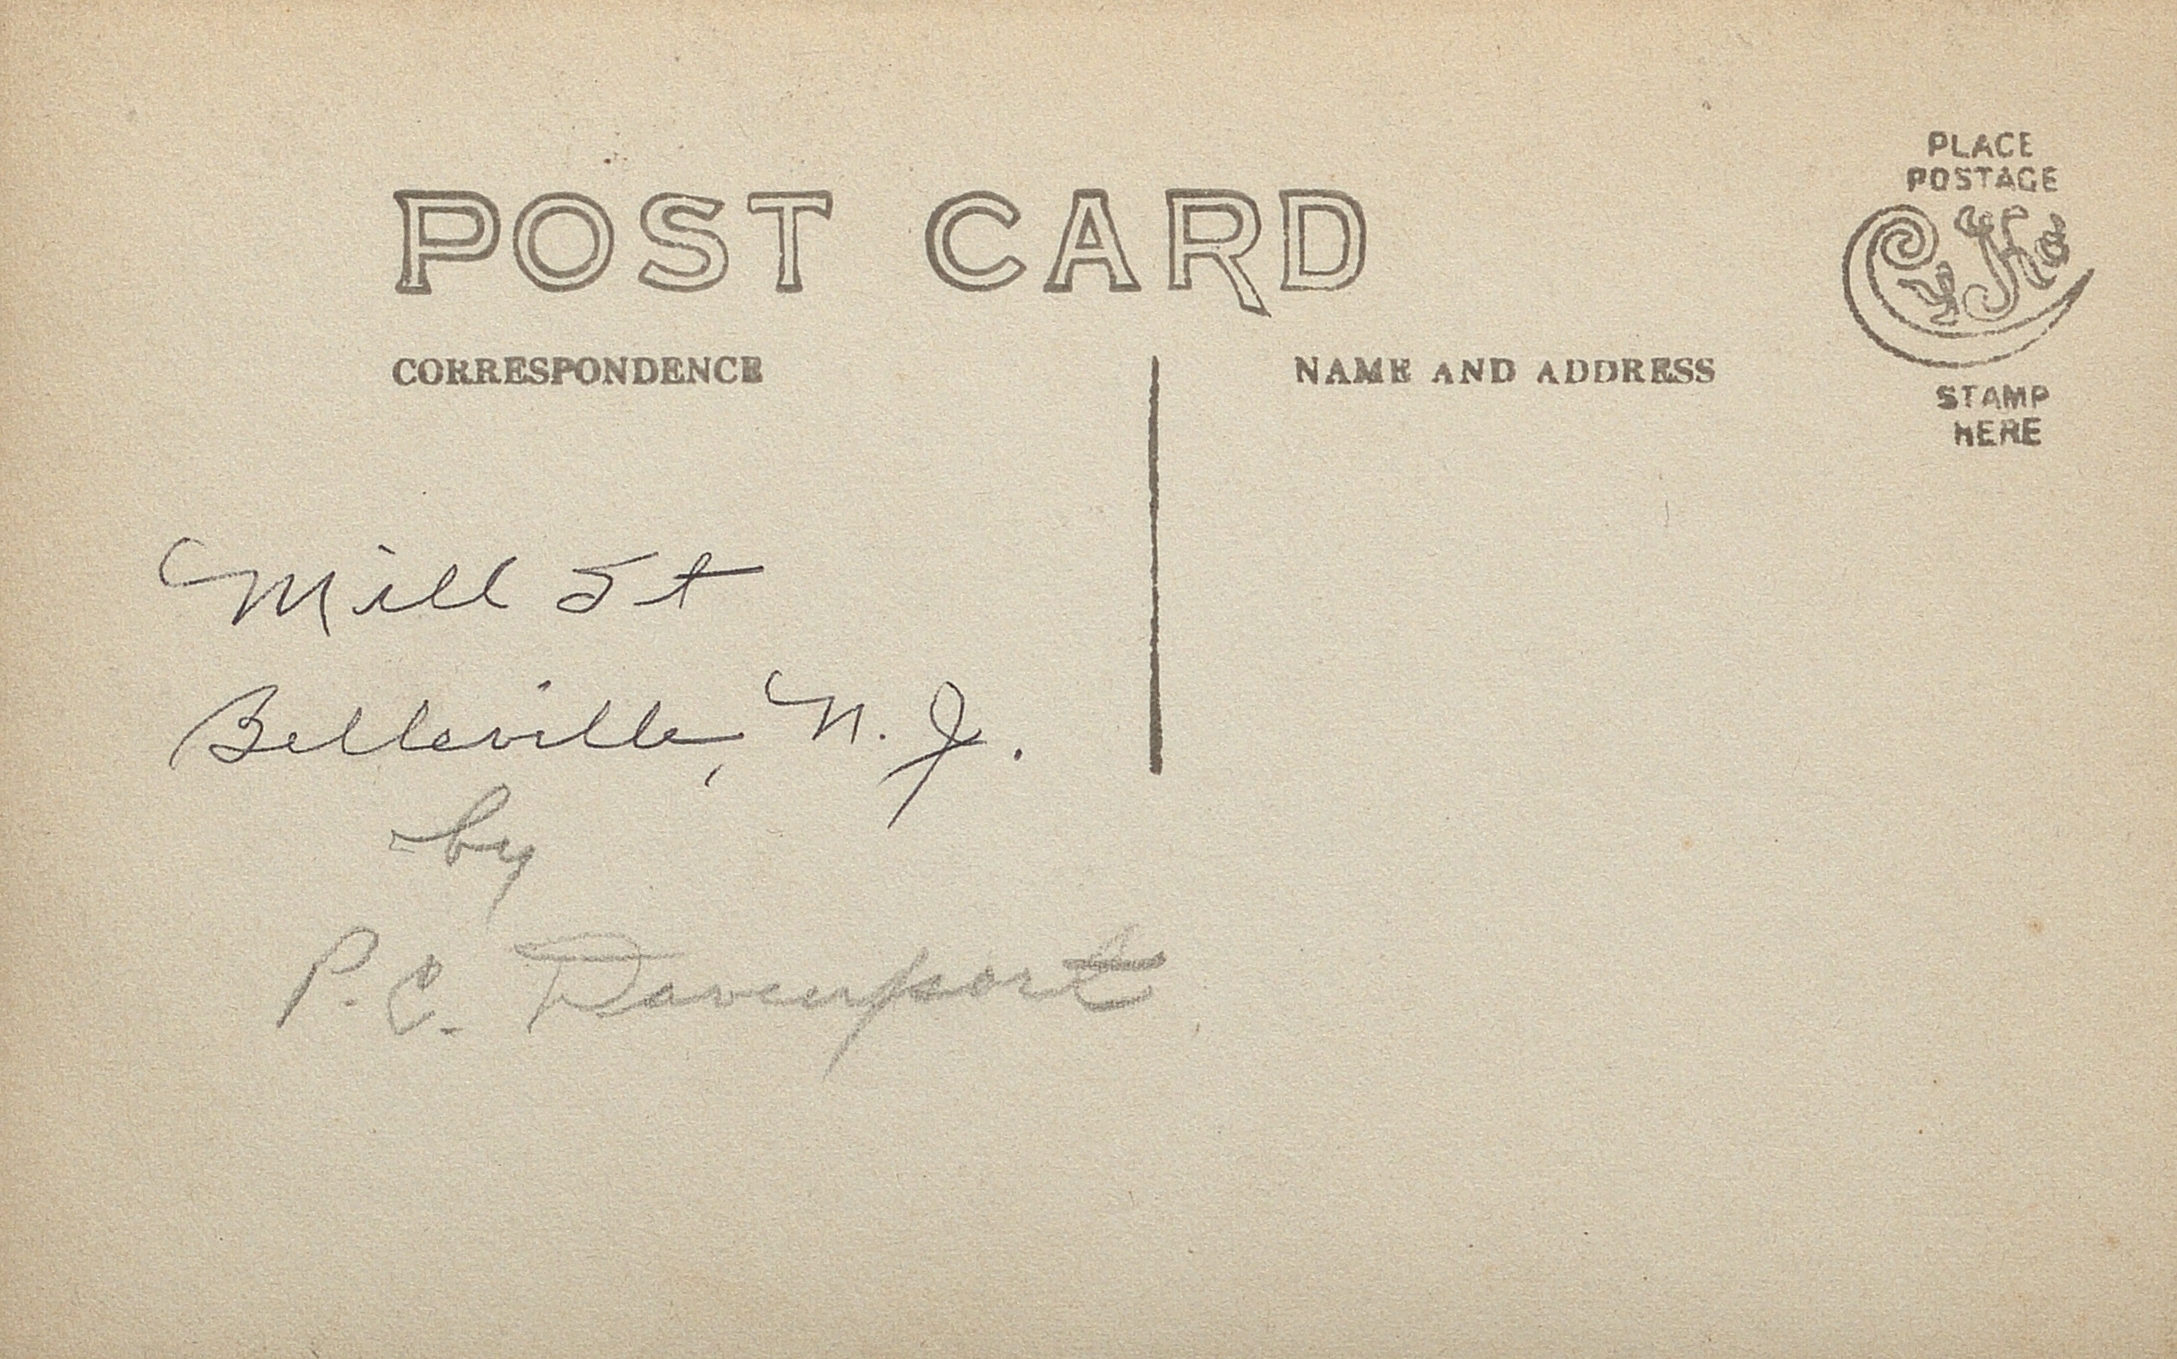 PLACE
POSTAGE
POST CARD
CyKo
STAMP
HERE
CORRESPONDENCE
NAME AND ADDRESS
Mill St
Belleville, N. J.
by
P. C. Davenport